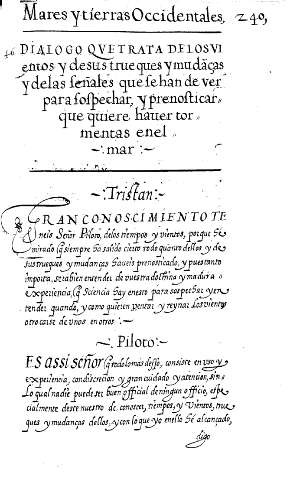 Mares y tierras Occidentales, 240,
DIALOGO QVE TRATA DE LOS VI
entos y de sus trueques y mudāças
y de las señales que se han de ver
para sospechar, y prenosticar
que quiere hauer tor
mentas en el
mar
Tristan
GRAN CONOSCIMIENTO TE
neis Señor Piloto, de los tiempos y vientos, porque he
mirado q̄ siempre ha salido cierto todo quanto dellos y de
sus trueques y mudanças haueis prenosticado, y pues tanto
importa, se a bien entender de vuestra doctrina y madura
experiencia, q̄ sciencia hay en esto para sospechar y en
tender quando, y como quieren ventar y reynar los vientos
otro caise de unos en otros
Piloto
ES assi señor q̄ todo lo mas desso, consiste en uso y
experiencia, con discrecion y gran cuidado y atencion, sin
lo qual nadie puede ser buen official de ningun officio, espe
cialmente deste nuestro de conoscer, tiempos, y Vientos, true
ques y mudanças dellos, y con lo que yo en ello hé alcançado,
digo